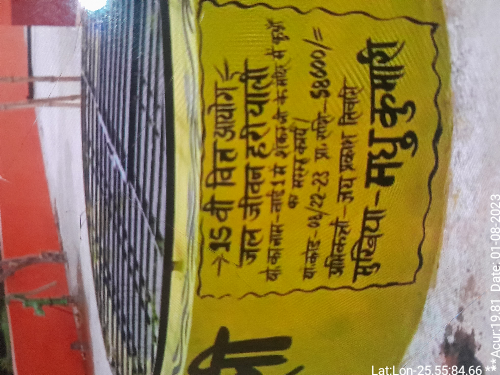 → 15 वी वित्त आयोग
जल जीवन हरियाली
यो. का नाम - वार्ड 1 में शंकर जी के मंदिर में कुआँ
का मरम्मत कार्य।
यो.कोड - 04/22-23 प्रा. राशि - 58600/=
अभिकर्ता - जय प्रकाश
मुखिया - मधु कुमारी
श्री
Lat:Lon-25.55:84.66
**Acur:19.81 Date: 01-08-2023